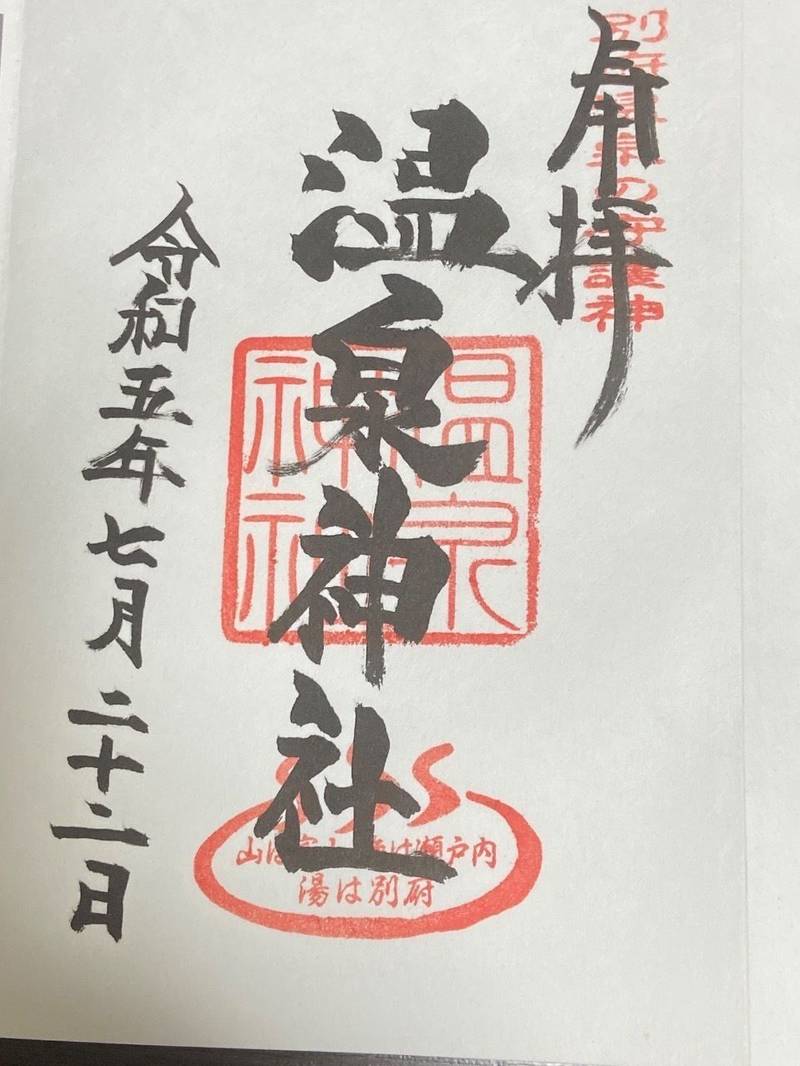 別府温泉の守護神
奉拝
温泉神社
温泉
神社
山は富士 海は瀬戸内
湯は別府
令和五年七月二十二日